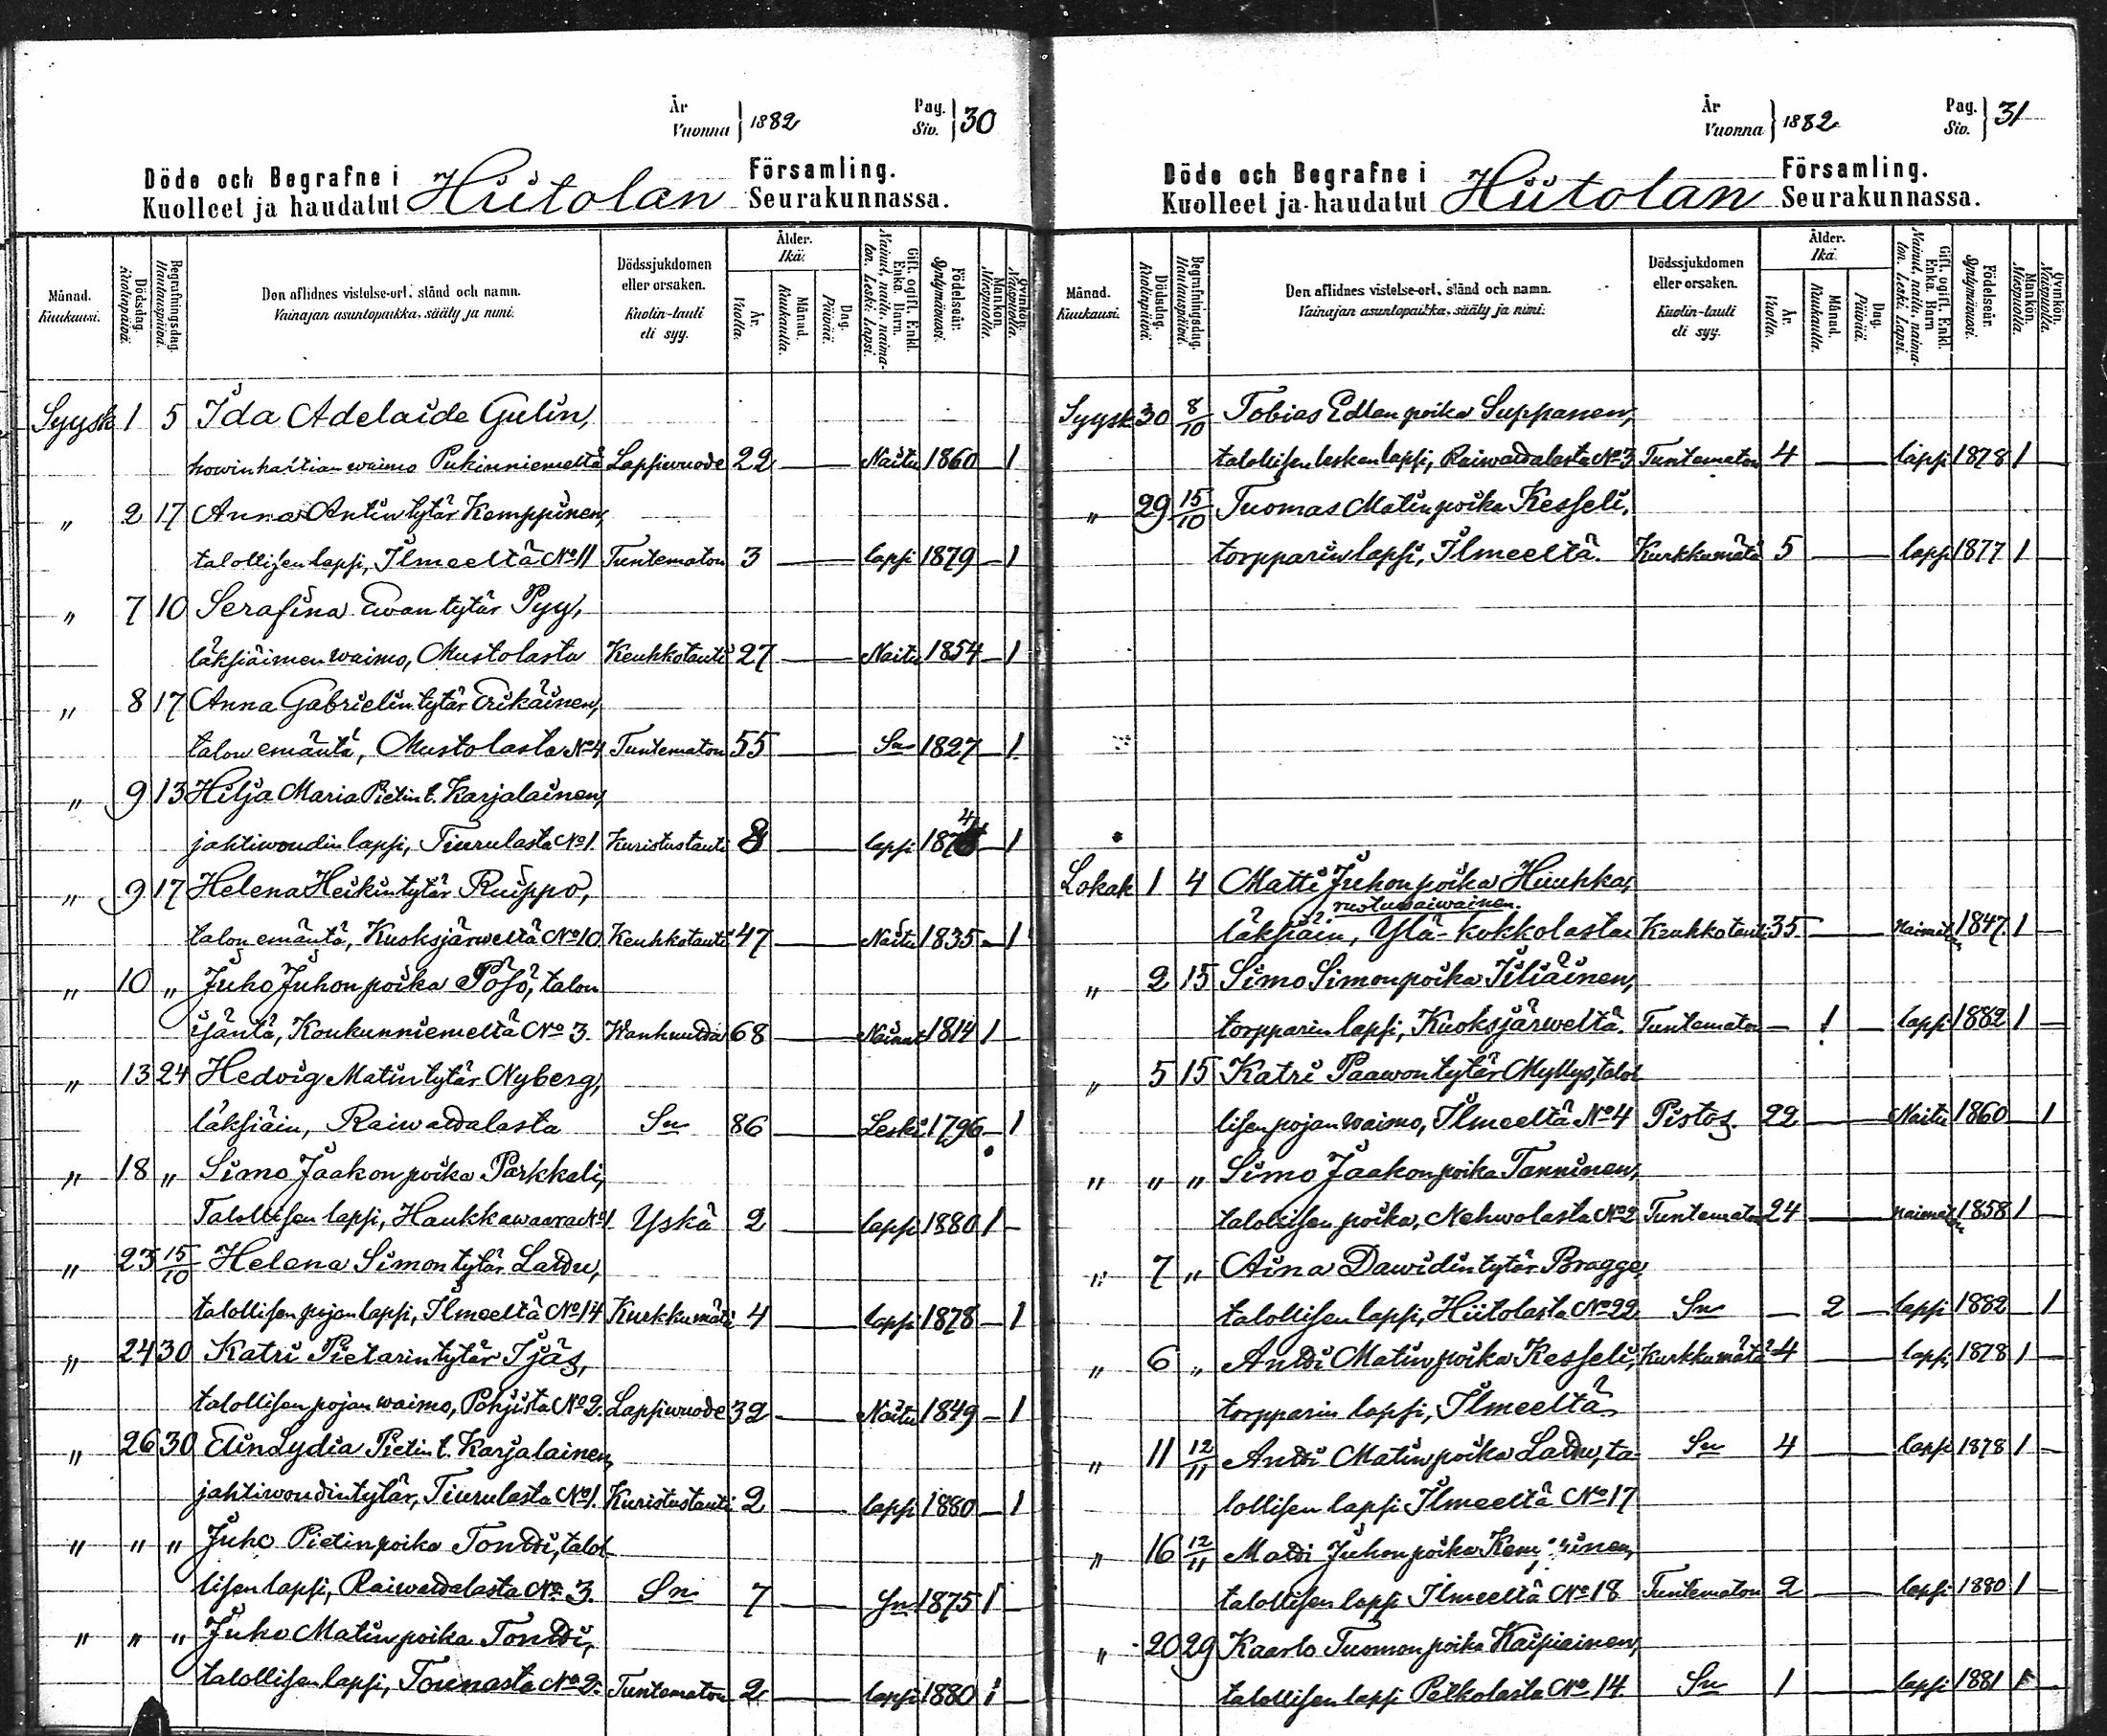 År
Vuonna } 1882
Pag.
Siv. } 30
Döde och Begrafne i Hiitolan Församling.
Kuolleet ja haudatut Seurakunnassa.
Månad. Kuukausi.
Dödsdag. Kuolinpäivä.
Begrafningsdag. Hautauspäivä.
Den aflidnes vistelse-ort, stånd och namn.
Vainajan asuntopaikka, sääty ja nimi.
Dödssjukdomen eller orsaken.
Kuolin-tauti eli syy.
Ålder. Ikä.
År. Vuotta.
Månad. Kuukautta.
Dag. Päivää.
Gift, ogift, Enkl. Enka. Barn.
Nainut, naitu, naimaton. Leski. Lapsi.
Födelseår. Syntymävuosi.
Mankön. Miespuolia.
Qvinkön. Naispuolia.
Syysk 1 5 Ida Adelaide Gulin,
howinhaltian waimo Pukinniemeltä Lapsiwuode 22 — Naitu 1860 — 1
" 2 17 Anna Antin tytär Kemppinen,
talollisen lapsi, Ilmeeltä No 11 Tuntematon 3 — lapsi 1879 — 1
" 7 10 Serafina Ewan tytär Pyy,
läksiäimen waimo, Mustolasta Keuhkotauti 27 — Naitu 1854 — 1
" 8 17 Anna Gabrielin tytär Erikäinen,
talon emäntä, Mustolasta No 4 Tuntematon 55 — Sn 1827 — 1
" 9 13 Hilja Maria Pietin t. Karjalainen,
jahtiwoudin lapsi, Tiurulasta No 1. Kuristustauti 8 — lapsi 1874 — 1
" 9 17 Helena Heikin tytär Ruippo,
talon emäntä, Kuoksjärweltä No 10 Keuhkotauti 47 — Naitu 1835 — 1
" 10 " Juho Juhon poika Pösö, talon
isäntä, Koukunniemeltä No 3. Wanhuuttaa 68 — Nainut 1814 1 —
" 13 24 Hedvig Matin tytär Nyberg,
läksiäin, Raiwattalasta Sn 86 — Leski 1796 — 1
" 18 " Simo Jaakon poika Parkkali,
Talollisen lapsi, Haukkawaara No 1 Yskä 2 — lapsi 1880 1 —
" 23 15/10 Helena Simon tytär Lattu,
talollisen pojan lapsi, Ilmeeltä No 14 Kurkkumätä 4 — lapsi 1878 — 1
" 24 30 Katri Pietarin tytär Ijäs,
talollisen pojan waimo, Pohjista No 2. Lapsiwuode 32 — Naitu 1849 — 1
" 26 30 Elin Lydia Pietin t. Karjalainen,
jahtiwoudin tytär, Tiurulasta No 1. Kuristustauti 2 — lapsi 1880 — 1
" " " Juho Pietin poika Tontti, talol-
lisen lapsi, Raiwattalasta No 3. Sn 7 — Sn 1875 1 —
" " " Juho Matin poika Tontti,
talollisen lapsi, Tounasta No 2. Tuntematon 2 — lapsi 1880 1 —
År
Vuonna } 1882
Pag.
Siv. } 31
Döde och Begrafne i Hiitolan Församling.
Kuolleet ja haudatut Seurakunnassa.
Månad. Kuukausi.
Dödsdag. Kuolinpäivä.
Begrafningsdag. Hautauspäivä.
Den aflidnes vistelse-ort, stånd och namn.
Vainajan asuntopaikka, sääty ja nimi.
Dödssjukdomen eller orsaken.
Kuolin-tauti eli syy.
Ålder. Ikä.
År. Vuotta.
Månad. Kuukautta.
Dag. Päivää.
Gift, ogift, Enkl. Enka. Barn
Nainut, naitu, naimaton. Leski. Lapsi.
Födelseår. Syntymävuosi.
Mankön. Miespuolia.
Qvinkön. Naispuolia.
Syysk 30 8/10 Tobias Edlan poika Suppanen,
talollisen lesken lapsi, Raiwattalasta No 3 Tuntematon 4 — lapsi 1878 1 —
" 29 15/10 Tuomas Matin poika Kesseli,
torpparin lapsi, Ilmeeltä. Kurkkumätä 5 — lapsi 1877 1 —
Lokak 1 4 Matti Juhon poika Hiuhka,
ruotuwaiwainen.
läksiäin, Ylä-kokkolasta Keuhkotauti 35 — naimaton 1847 1 —
" 2 15 Simo Simon poika Iiliäinen,
torpparin lapsi, Kuoksjärweltä. Tuntematon — 1 — lapsi 1882 1 —
" 5 15 Katri Paawon tytär Myllys, talol-
lisen pojan waimo, Ilmeeltä No 4 Pistos. 22 — Naitu 1860 — 1
" " " Simo Jaakon poika Tanninen,
talollisen poika, Nehwolasta No 2 Tuntematon 24 — naimaton 1858 1 —
" 7 " Aina Dawidin tytär Bragge,
talollisen lapsi, Hiitolasta No 22 Sn — 2 — lapsi 1882 — 1
" 6 " Antti Matin poika Kesseli, Kurkkumätä 4 — lapsi 1878 1 —
torpparin lapsi, Ilmeeltä
" 11 12/11 Antti Matin poika Lattu, ta- Sn 4 — lapsi 1878 1 —
lollisen lapsi Ilmeeltä No 17
" 16 12/11 Matti Juhon poika
talollisen lapsi Ilmeeltä No 18 Tuntematon 2 — lapsi 1880 1 —
" 20 29 Kaarlo Tuomon poika Kaipiainen,
talollisen lapsi Petkolasta No 14 Sn 1 — lapsi 1881 1 —